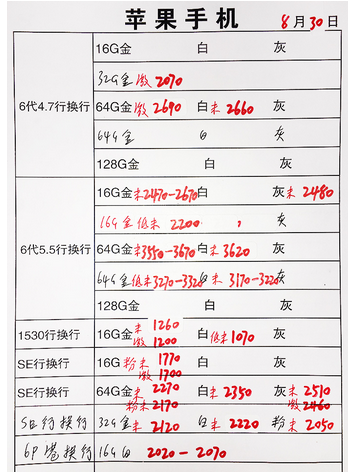 苹果手机 8月30日
16G金 白 灰
32G金激2070
6代4.7行换行 64G金激2690 白未2660 灰
64G金 白 灰
128G金 白 灰
16G金未2470-2670白 灰未2480
16G金低未2200 灰
6代5.5行换行 64G金未3550-3670白未3620 灰
64G金低未3270-3320白未3170-3220灰
128G金 白 灰
1530行换行 16G金未1260 激1200 白低未1070 灰
SE行换行 16G粉未1770 激1700 白 灰
SE行换行 64G金未2270 粉未2170 白未2350 灰未2510 激2460
SE行换行 32G金未2120 白未2220 粉未2050
6P 换行 16G白 2020-2070